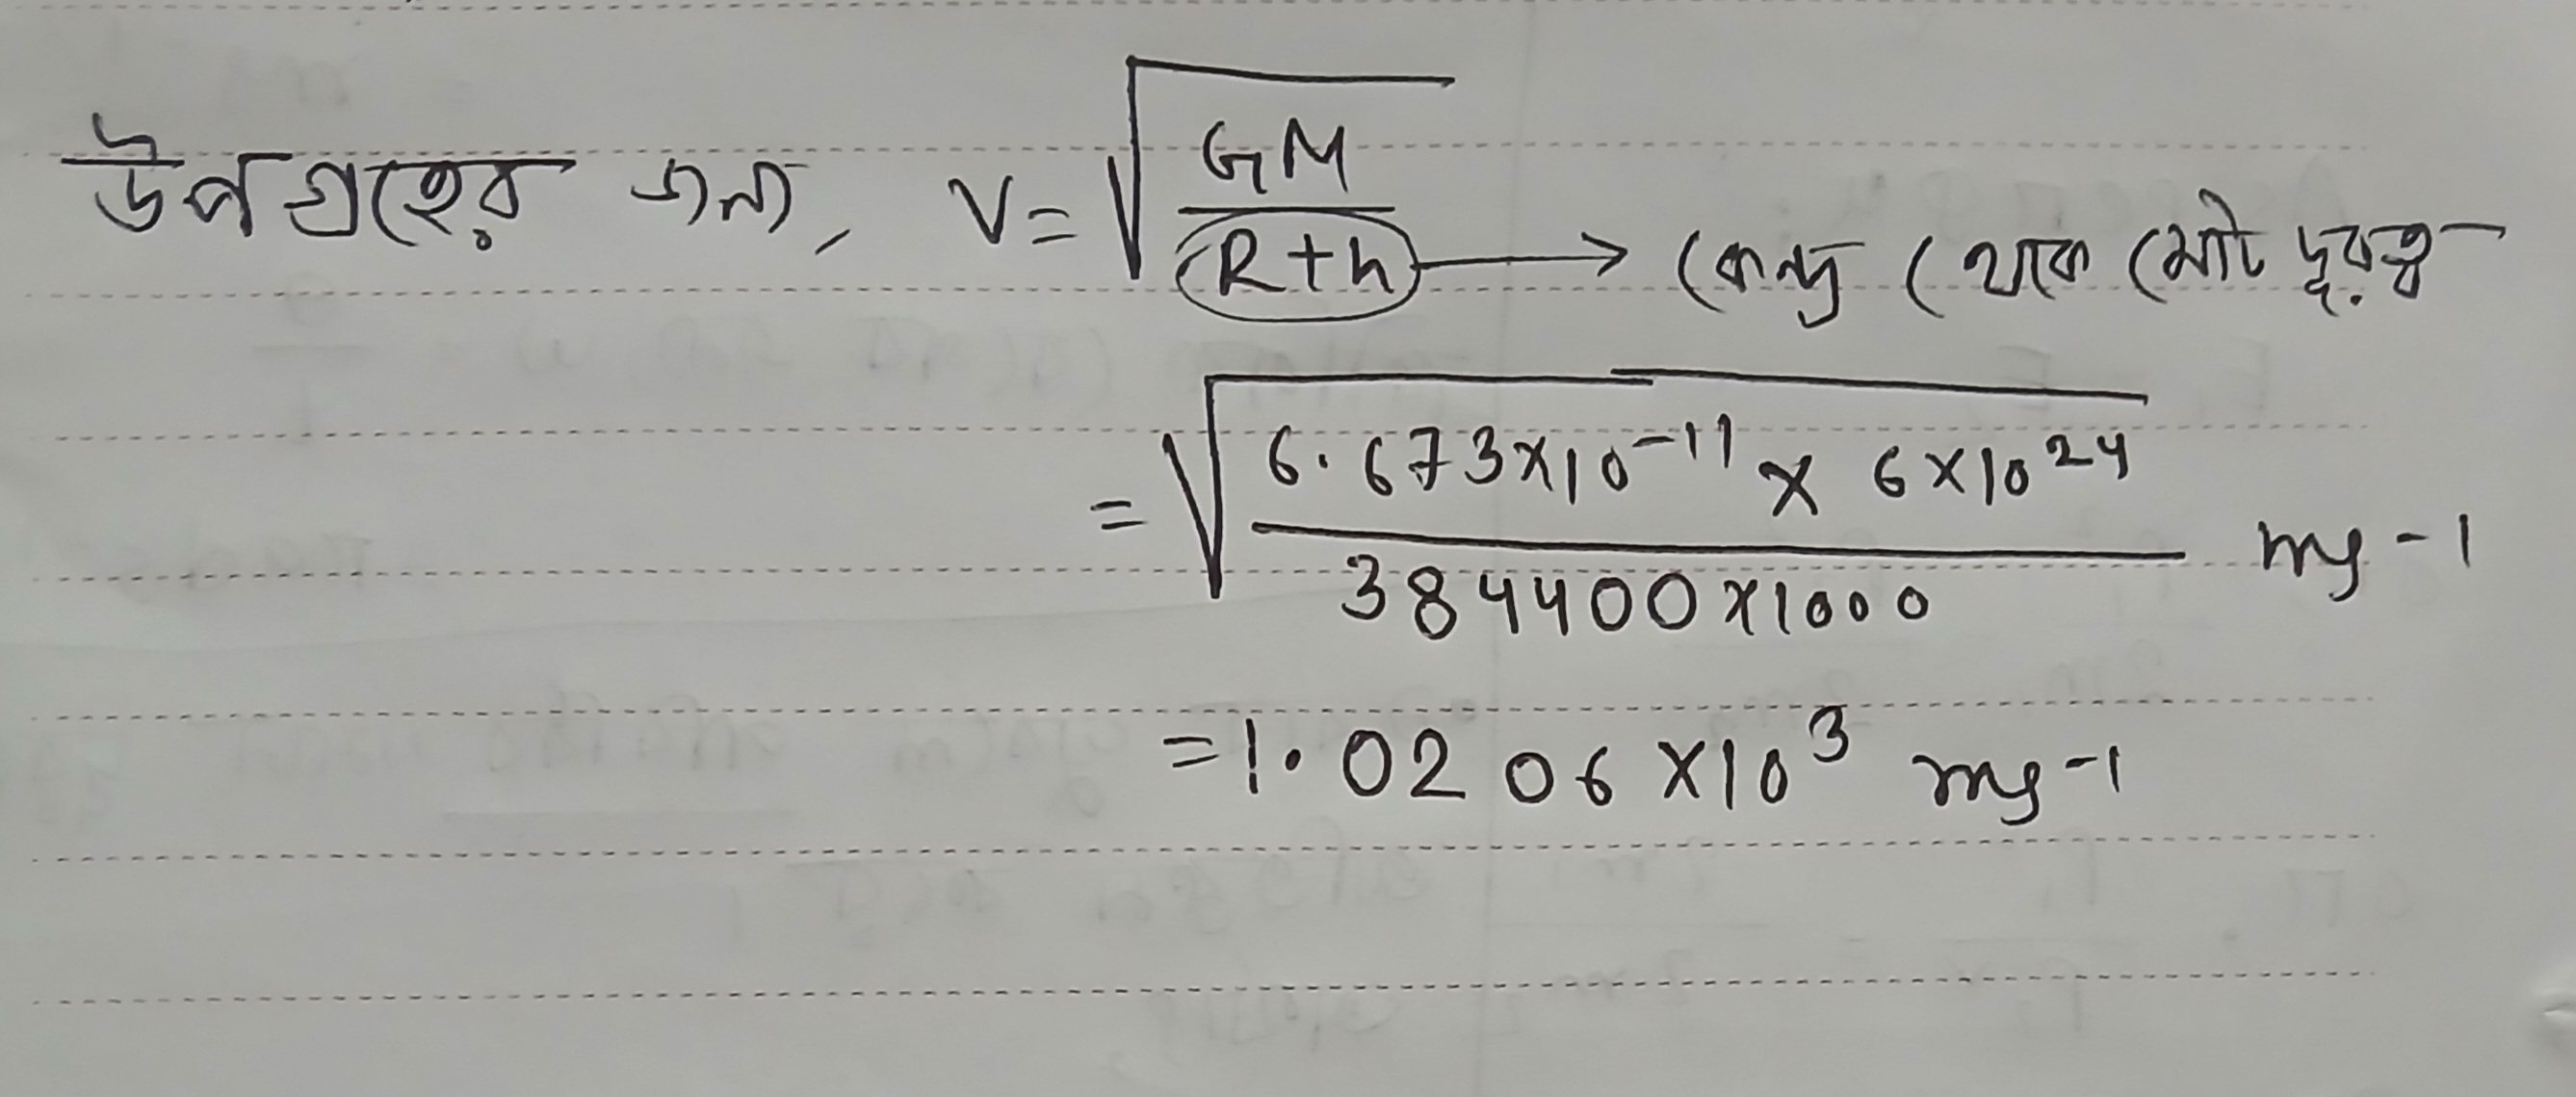 উপগ্রহের জন্য, V = √(GM / (R+h)) → কেন্দ্র থেকে মোট দূরত্ব
= √(6.673×10⁻¹¹ × 6×10²⁴ / 384400×1000) ms⁻¹
= 1.0206 ×10³ ms⁻¹